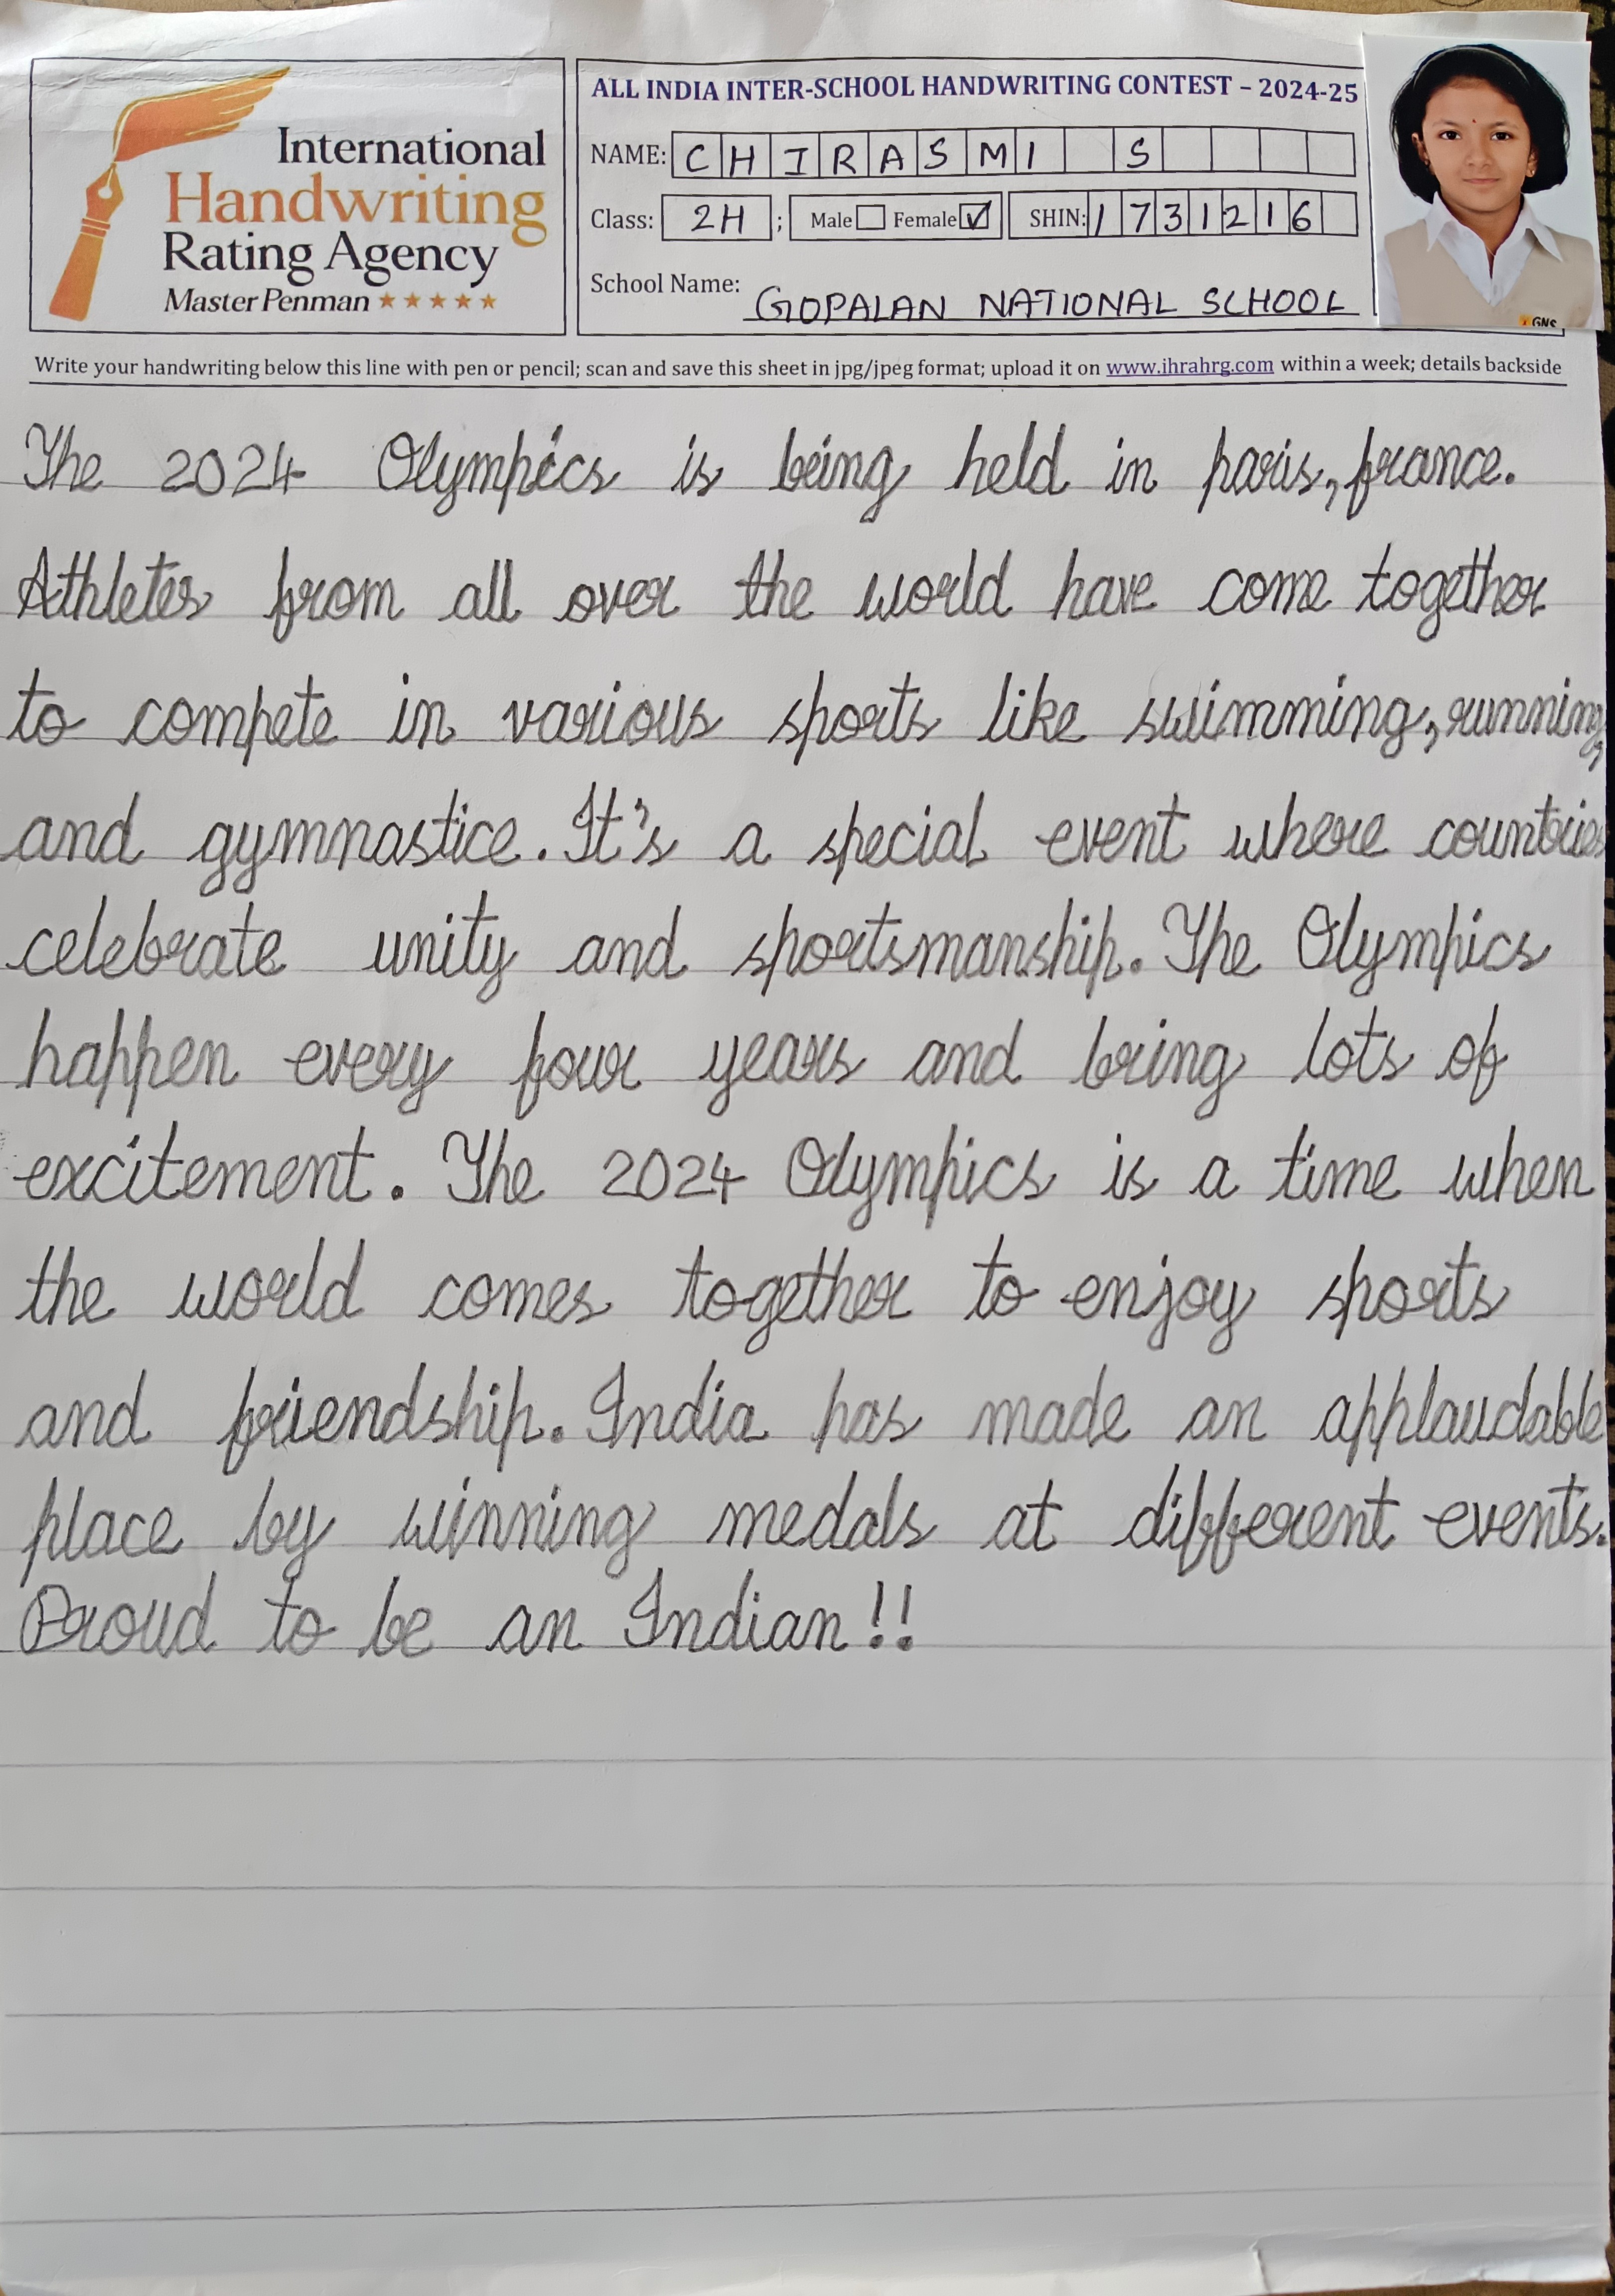 International
Handwriting
Rating Agency
Master Penman ★★★★★
ALL INDIA INTER-SCHOOL HANDWRITING CONTEST – 2024-25
NAME: CHIRASMI S
Class: 2H ; Male ☐ Female ☑ SHIN: 1731216
School Name: GOPALAN NATIONAL SCHOOL
GNS
Write your handwriting below this line with pen or pencil; scan and save this sheet in jpg/jpeg format; upload it on www.ihrahrg.com within a week; details backside
The 2024 Olympics is being held in paris, france.
Athletes from all over the world have come together
to compete in various sports like swimming, running,
and gymnastice. It's a special event where countries
celebrate unity and sportsmanship. The Olympics
happen every four years and bring lots of
excitement. The 2024 Olympics is a time when
the world comes together to enjoy sports
and friendship. India has made an applaudable
place by winning medals at different events.
Proud to be an Indian!!